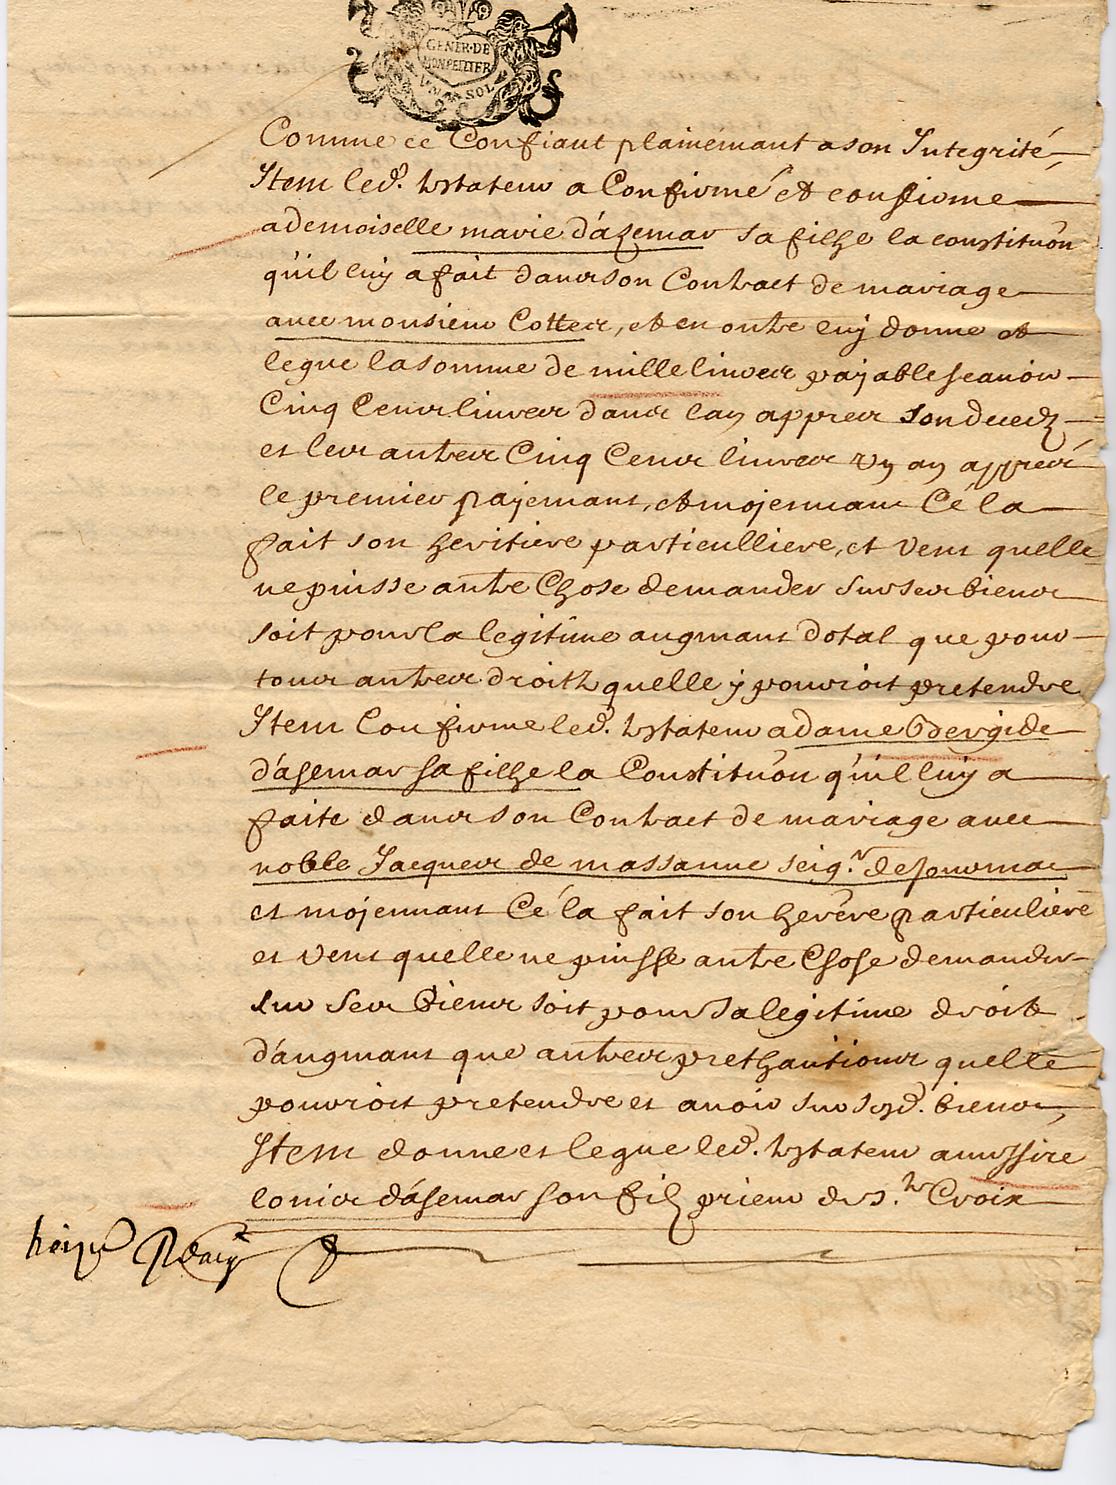 GENER·DE
MONPELLIER
UN SOL
Comme ce Confiant plainemant a son Integrité,
Item led. testateur a Confirmé et confirme
a demoiselle marie d'azemar sa filhe la constituôn
qu'il luy a fait dans son Contract de mariage
avec monsieur Cottex, et en outre luy donne et
legue la somme de mille livres payable scavoir
Cinq Cens livres dans lan appres son decedz
et les autres Cinq Cens livres un an appres
le premier payemant, et mojennant Cé la
fait son heritiere particulliere, et veut quelle
ne puisse autre Chose demander sur ses biens
soit pour la legitime augmant dotal que pour
tous autres droitz quelle y pouroit pretendre
Item Confirme led. testateur a dame
d'asemar sa filhe la Constituôn qu'il luy a
faite dans son Contract de mariage avec
noble Jacques de massanne seigr. de
et mojennant Cé la fait son herere particuliere
et veut quelle ne puisse autre Chose demander
sur ses Biens soit pour sa legitime droit
d'augmant que autres prethantions quelle
pouroit pretendre et avoir sur sesd. biens,
Item donne et legue led. testateur a messire
louis d'asemar son filz prieur de Ste Croix